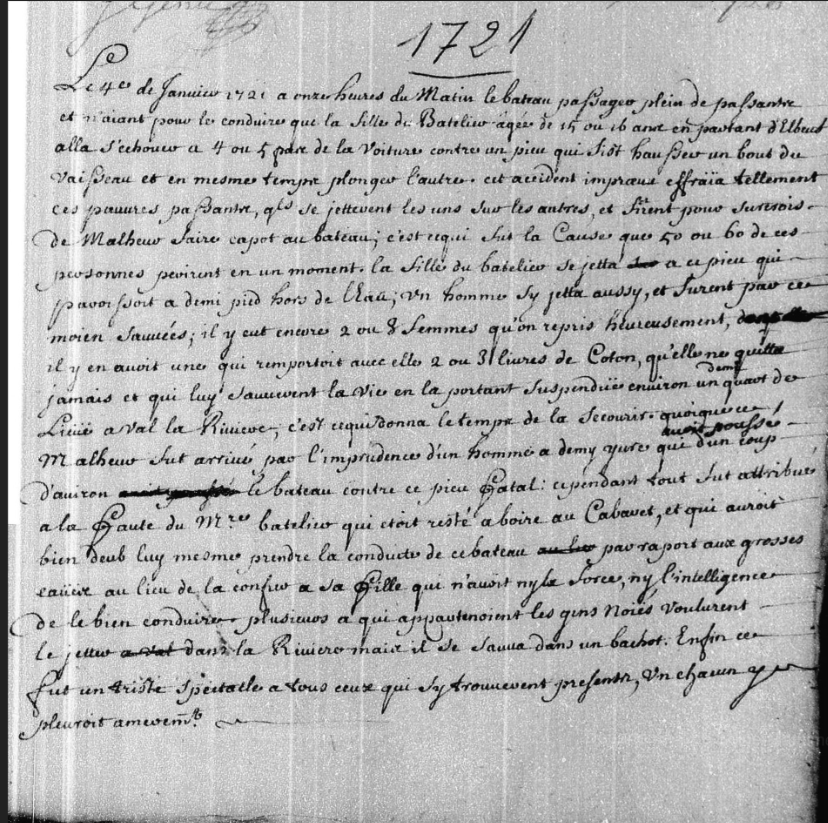 1721
Le 4e de Janvier 1721 a onze heures du Matin le bateau passager plein de passants
et n'aiant pour le conduire que la fille du Batelier âgée de 15 ou 16 ans en partant d'Elbeuf
alla s'echouer a 4 ou 5 pas de la Voiture contre un pieu qui fist hausser un bout du
Vaisseau et en mesme temps plonger l'autre. cet accident impreuu effraïa tellement
ces pauures passants, qls se jetterent les uns sur les autres, et firent pour surcrois
de Malheur faire capot au bateau; c'est cequi fut la Cause que 50 ou 60 de ces
personnes perirent en un moment. la fille du batelier se jetta a ce pieu qui
paroissoit a demi pied hors de l'Eau; Un homme sy jetta aussy, et furent par ce
moien sauuées; il y eut encore 2 ou 3 femmes qu'on repris heureusement,
il y en auoit une qui remportoit auec elle 2 ou 3 liures de Coton, qu'elle ne quitta
jamais et qui luy sauuerent la Vie en la portant suspenduë environ un demy quart de
Lieüe a val la Riuiere, c'est cequi donna le temps de la secourir. quoique ce
Malheur fut arriué par l'imprudence d'un homme a demy yure qui d'un coup
d'auiron auoit poussé le bateau contre ce pieu fatal: cependant tout fut attribué
a la faute du Mre. batelier qui etoit resté a boire au Cabaret, et qui auroit
bien deub luy mesme prendre la conduite de ce bateau par raport aux grosses
eaües au lieu de la confier a sa fille qui n'auoit ny la force, ny l'intelligence
de le bien conduire. plusieurs a qui appartenoient les gens Noiés voulurent
le jetter dans la Riuiere mais il se sauua dans un bachot. Enfin ce
fut un triste spectacle a tous ceux qui sy trouuerent presents, Un chacun y
pleuroit ameremt.